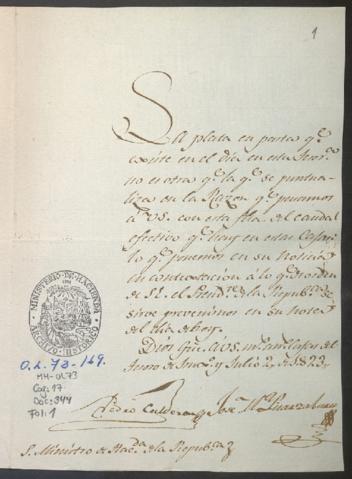 1
La plata en pasta q.e
existe en el dia en esta Teso.
no es otra q.e la q.e se puntua-
liza en la Razon q.e pasamos
á VS. con esta fha. del caudal
efectivo q.e hay en estas Cajas
lo q.e ponemos en su noticia
en contestacion á lo q.e de orden
de S.E. el Presid.te de la Republica se
sirve prevenirnos en su nota
del dia de hoy.
Dios gue. á VS. m.s
Julio 2 de 1823.
Pedro Calderon Jose M.l
S. Ministro de Haz.da de la Republica
MINISTERIO DE HACIENDA
ARCHIVO HISTORICO
O.L. 73-149.
MH-OL73
Caj: 17
Doc: 344
Fol: 1